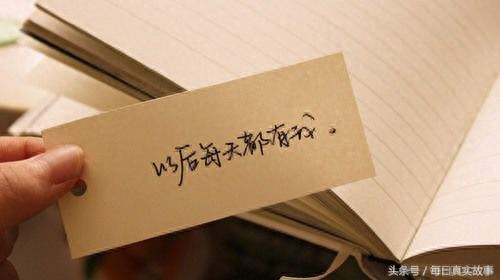 以后每天都有我。
头条号／每日真实故事